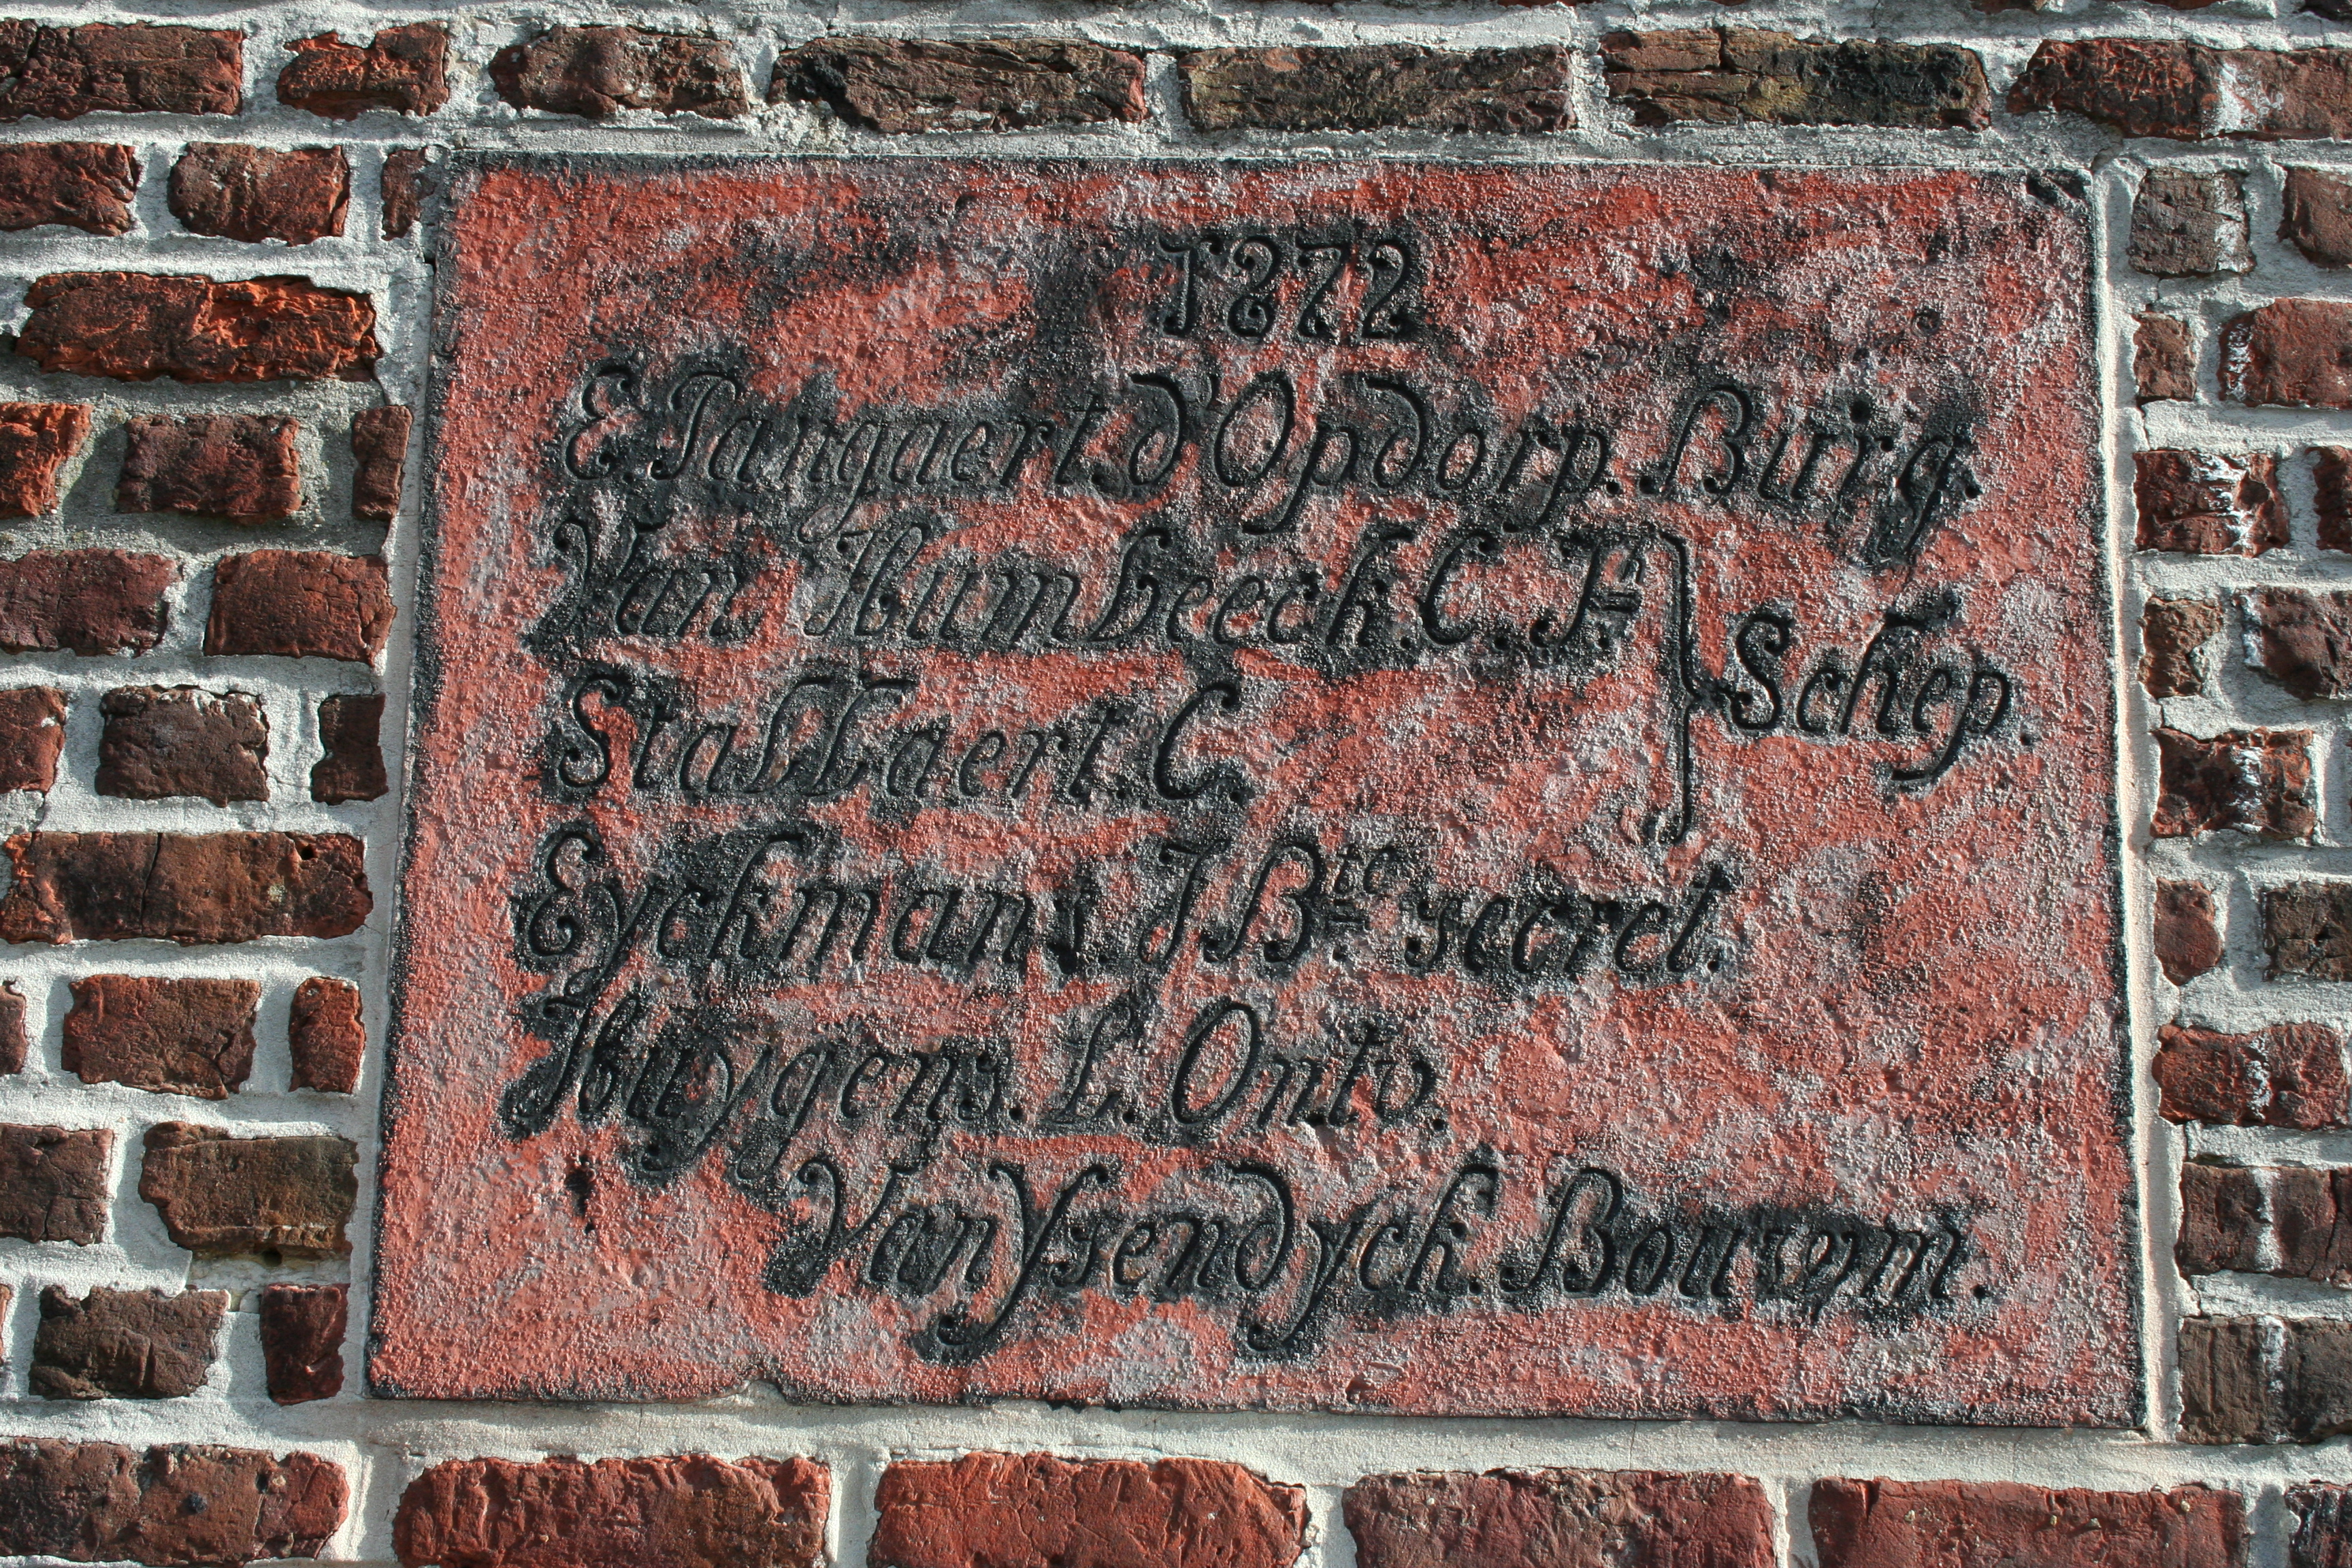 1872
E. Pangaert. d'Opdorp. Burg.
Van Humbeeck. C. Jn
Schep.
Stallaert. C.
Eyckmans. J. Bte secret.
Huygens. L. Ontv.
Van Ysendyck. Bouwm.